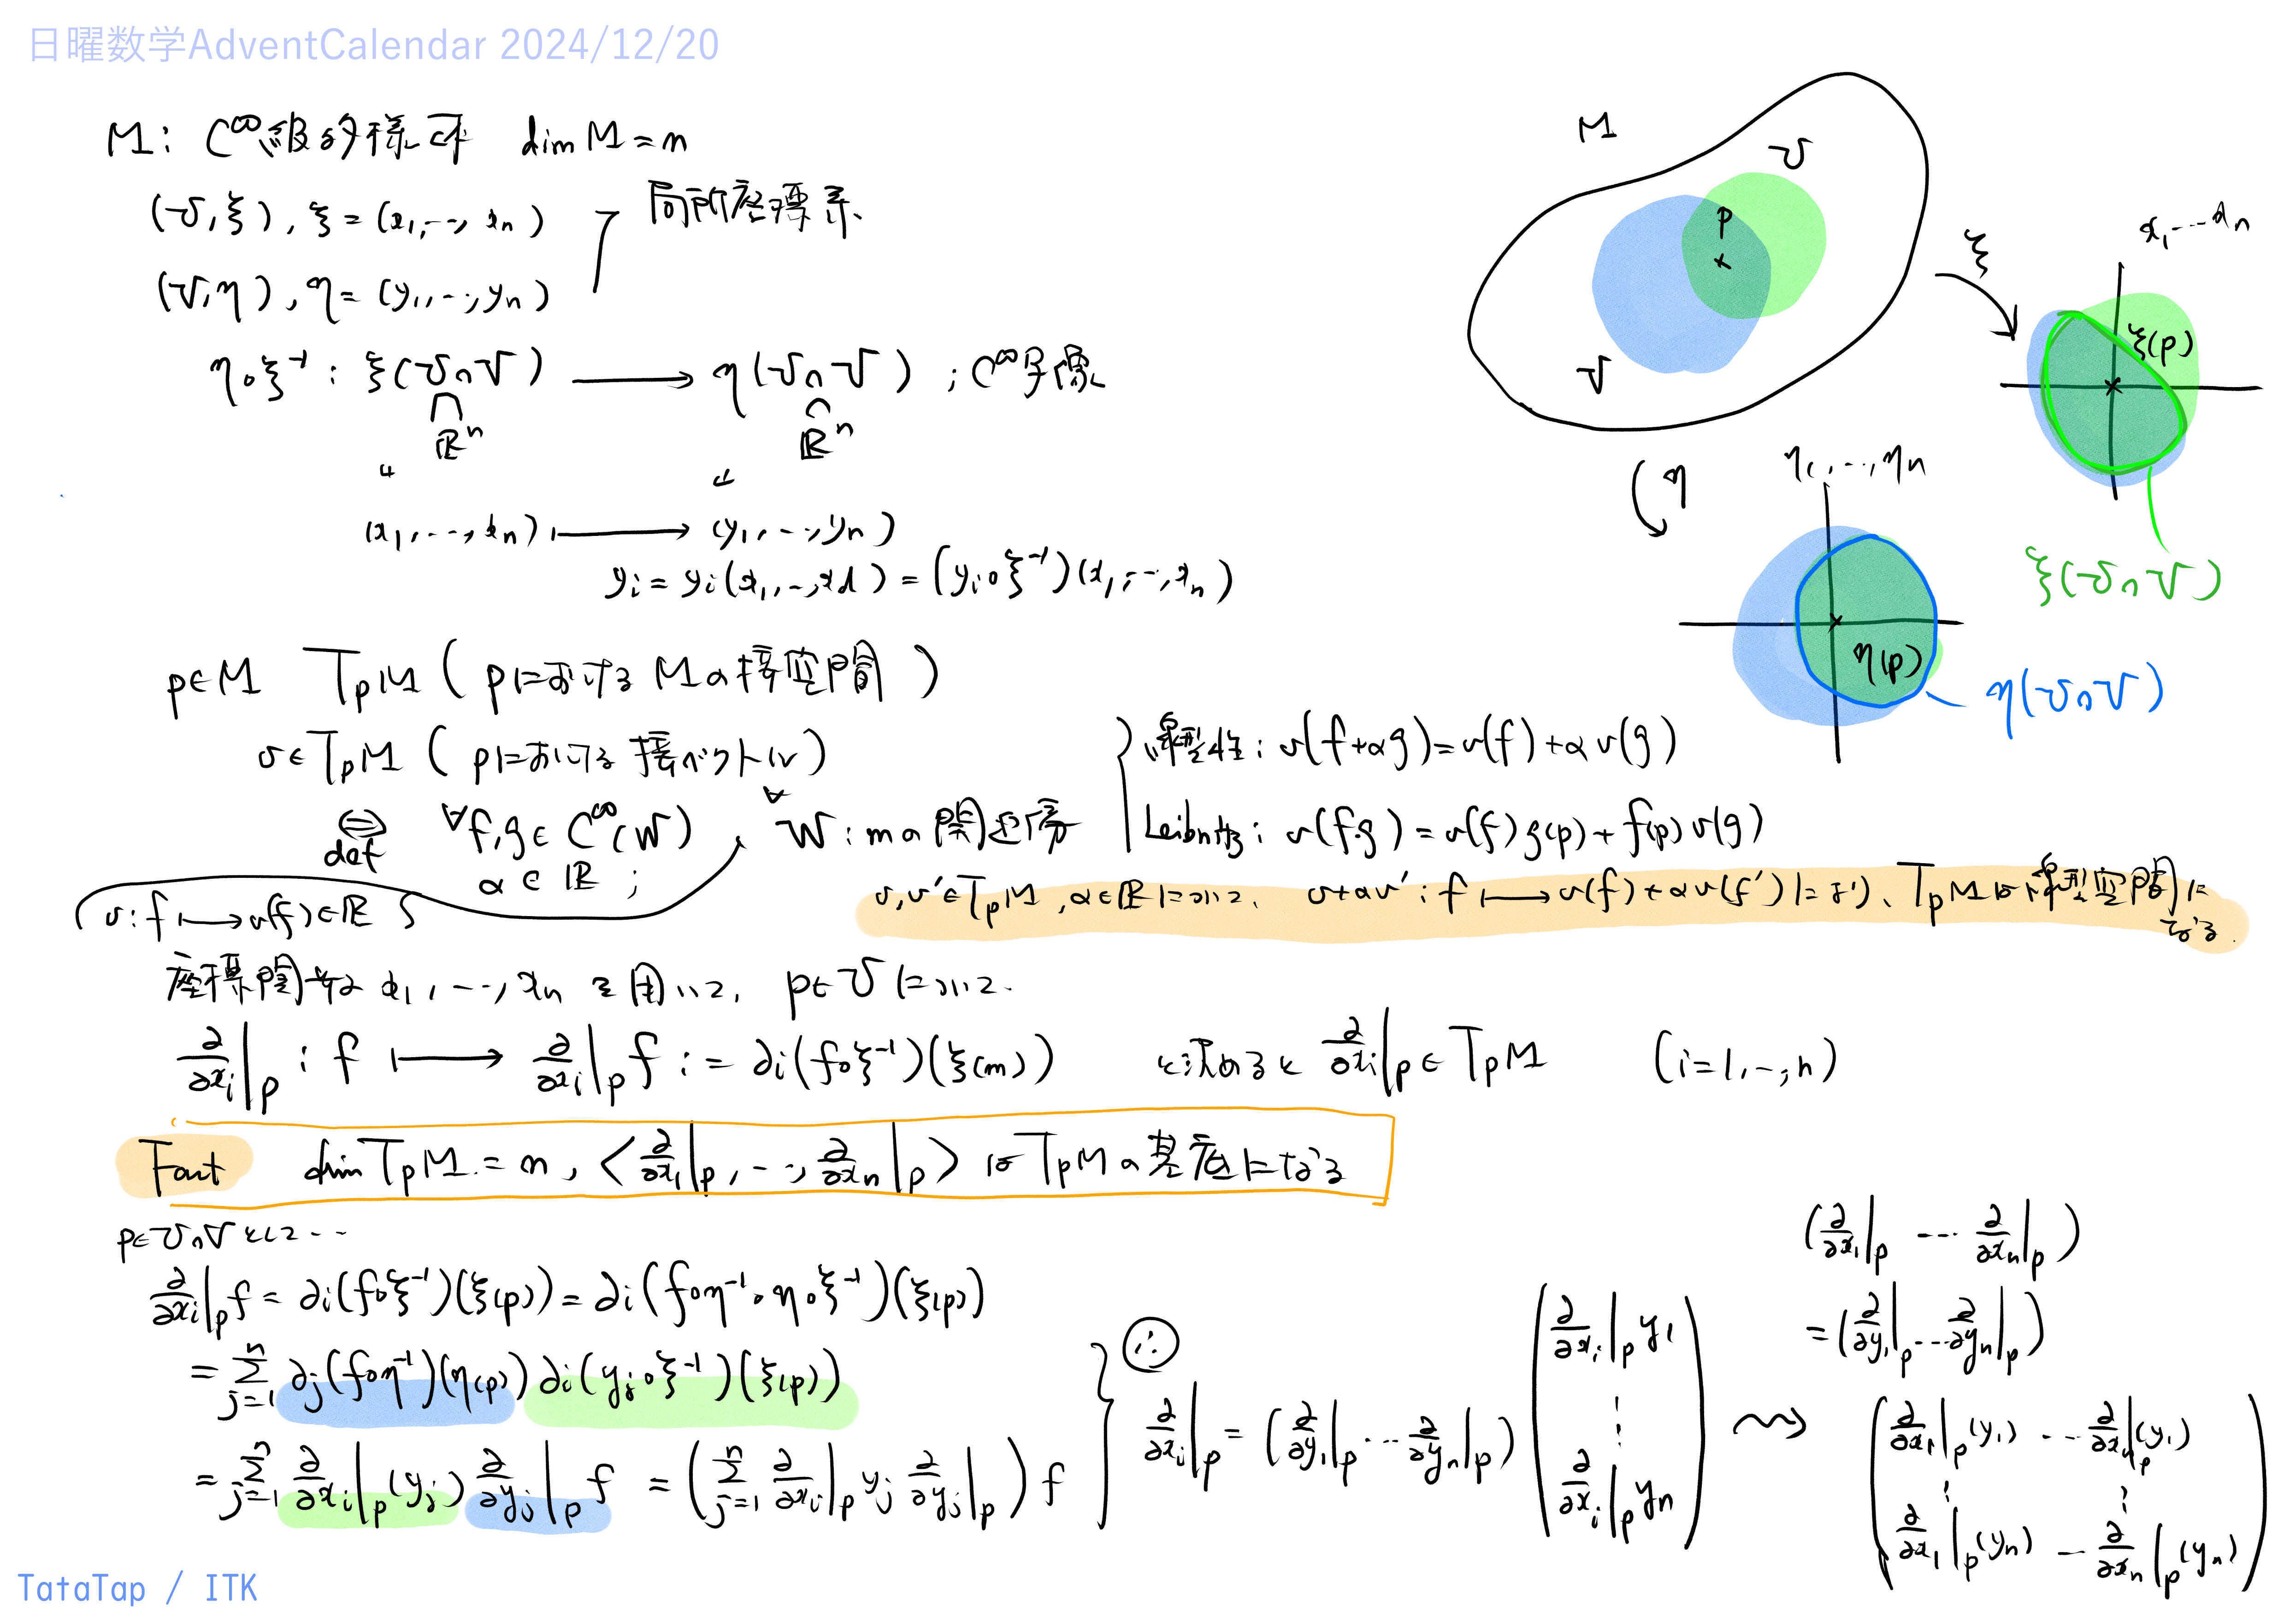 日曜数学AdventCalendar 2024/12/20
M: C^∞級多様体 dim M = n
(U, ξ), ξ = (x₁, ⋯, xₙ)
局所座標系
(V, η), η = (y₁, ⋯, yₙ)
η∘ξ⁻¹ : ξ(U∩V) ⟶ η(U∩V) ; C^∞写像
ℝⁿ ℝⁿ
(x₁, ⋯, xₙ) ⟼ (y₁, ⋯, yₙ)
yᵢ = yᵢ(x₁, ⋯, xd) = (yᵢ∘ξ⁻¹)(x₁, ⋯, xₙ)
M
U
p
V
ξ
x₁ ⋯ xₙ
ξ(p)
ξ(U∩V)
η
η₁, ⋯, ηₙ
η(p)
η(U∩V)
p∈M TpM (pにおける Mの接空間)
v∈TpM (pにおける接ベクトル)
⇔def ∀f,g∈C^∞(W), ∀W: mの開近傍
α∈ℝ ;
v: f ⟼ v(f)∈ℝ
線型性: v(f+αg) = v(f) + αv(g)
Leibnitz: v(f·g) = v(f)g(p) + f(p)v(g)
v, v'∈TpM, α∈ℝについて、 v+αv' : f ⟼ v(f)+αv(f')により、TpMは線型空間に
なる.
座標関数 x₁, ⋯, xₙ を用いて, p∈Uについて.
∂/∂xᵢ|p : f ⟼ ∂/∂xᵢ|p f := ∂ᵢ(f∘ξ⁻¹)(ξ(m)) と決めると ∂/∂xᵢ|p ∈ TpM (i=1, ⋯, n)
Fact dim TpM = n, <∂/∂x₁|p, ⋯, ∂/∂xₙ|p> は TpMの基底になる
p∈U∩V として⋯
∂/∂xᵢ|p f = ∂ᵢ(f∘ξ⁻¹)(ξ(p)) = ∂ᵢ(f∘η⁻¹∘η∘ξ⁻¹)(ξ(p))
= Σⁿⱼ₌₁ ∂ⱼ(f∘η⁻¹)(η(p)) ∂ᵢ(yⱼ∘ξ⁻¹)(ξ(p))
= Σⁿⱼ₌₁ ∂/∂xᵢ|p (yⱼ) ∂/∂yⱼ|p f = (Σⁿⱼ₌₁ ∂/∂xᵢ|p yⱼ ∂/∂yⱼ|p) f
∴
∂/∂xᵢ|p = (∂/∂y₁|p ⋯ ∂/∂yₙ|p)
(∂/∂xᵢ|p y₁
⋮
∂/∂xᵢ|p yₙ)
⇝
(∂/∂x₁|p ⋯ ∂/∂xₙ|p)
= (∂/∂y₁|p ⋯ ∂/∂yₙ|p)
(∂/∂x₁|p (y₁) ⋯ ∂/∂xₙ|p (y₁)
⋮ ⋮
∂/∂x₁|p (yₙ) ⋯ ∂/∂xₙ|p (yₙ))
TataTap / ITK